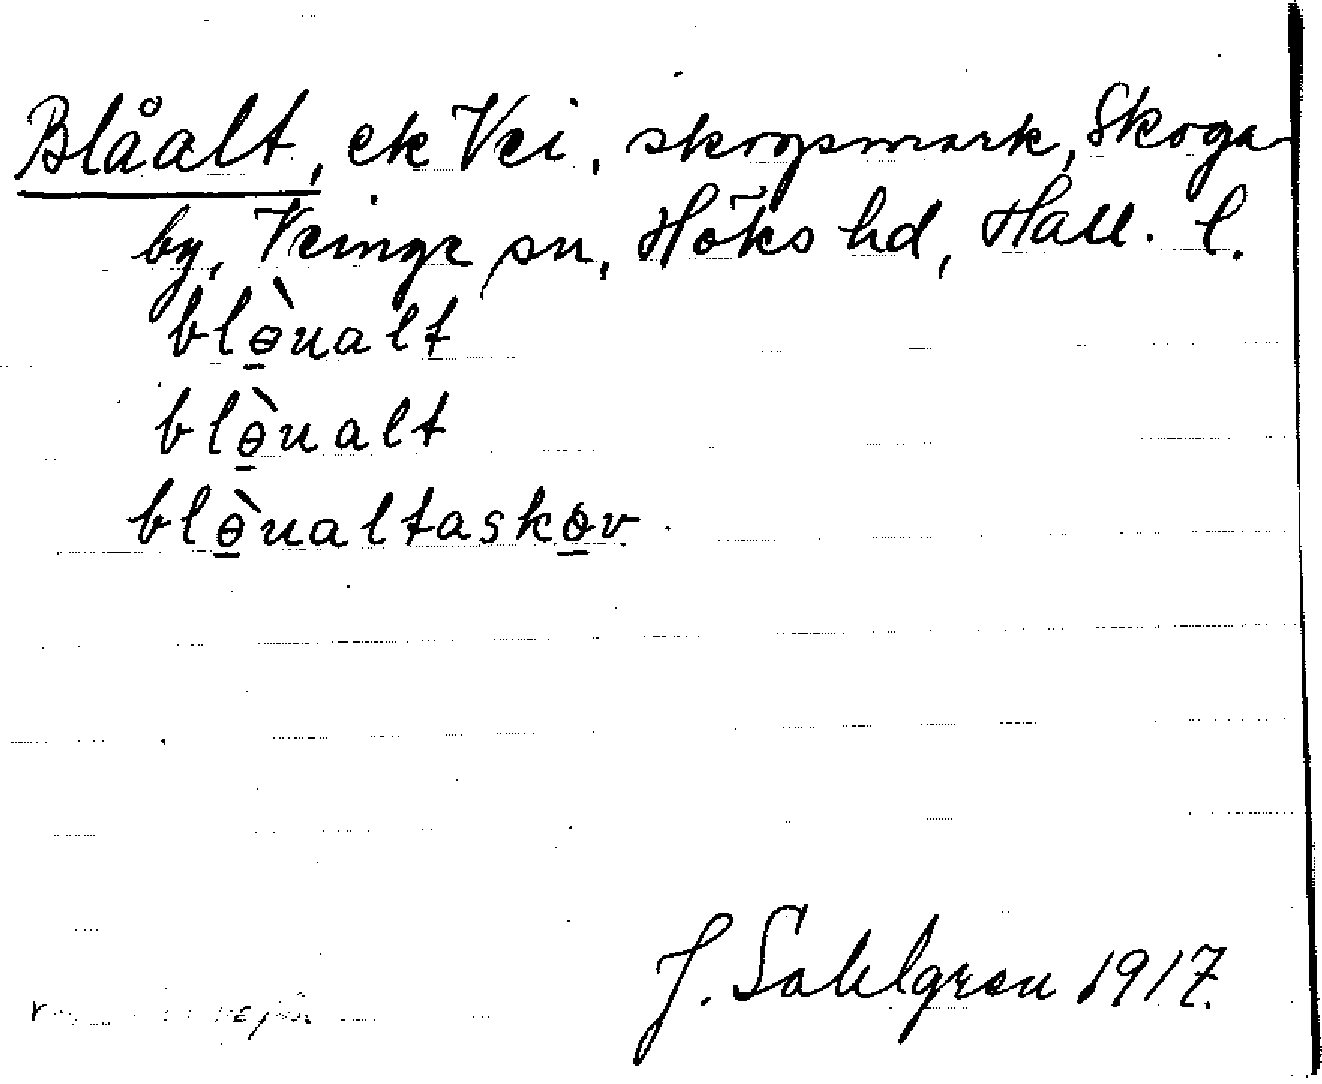 Blåalt, ek Vei, skogsmark, Skoga-
by, Veinge sn, Höks hd, Hall. l.
blɵ̱̀ualt
blɵ̱̀ualt
blɵ̱̀ualtaskɵ̱v.
J. Sahlgren 1917.